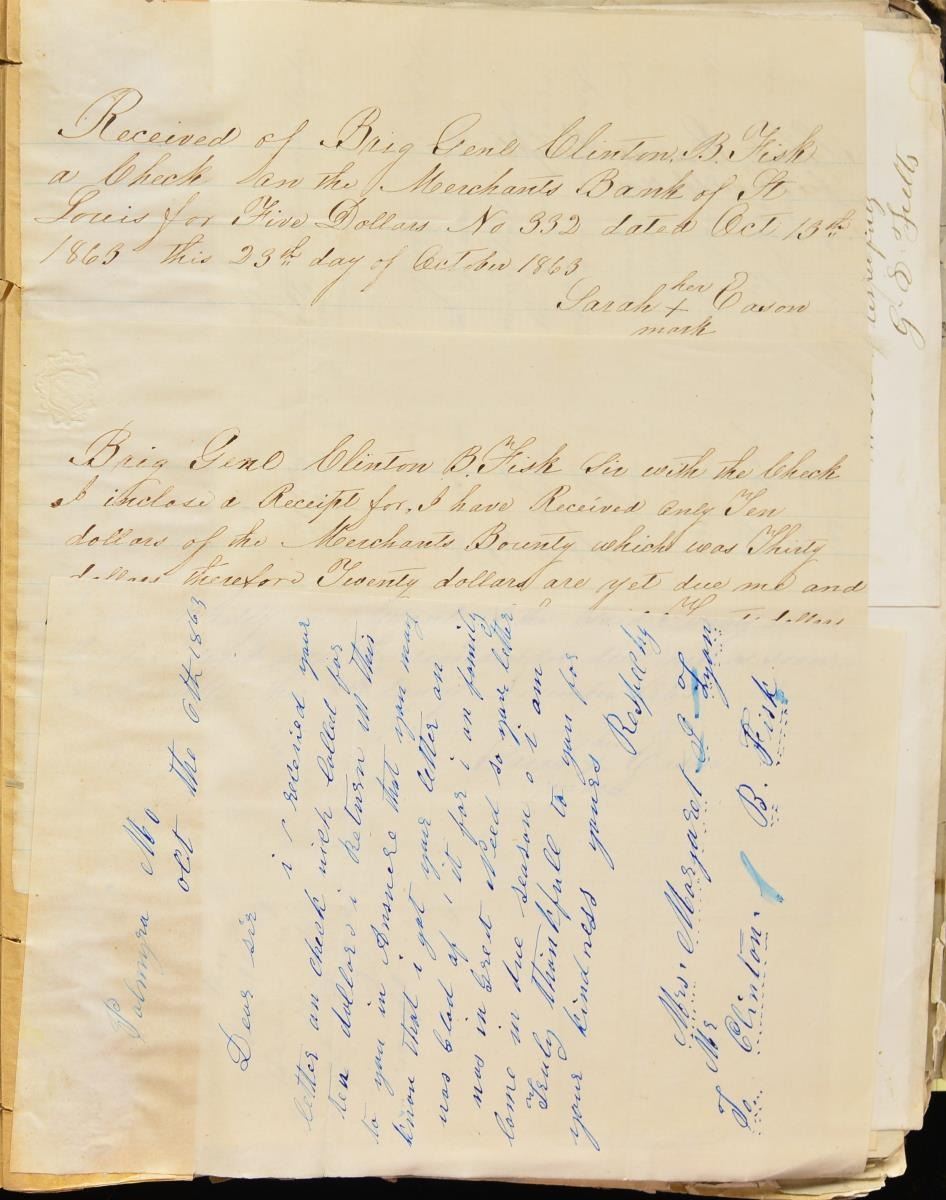 Received of Brig Genl Clinton. B. Fisk
a Check on the Merchants Bank of St
Louis for Five Dollars No 332 dated Oct 13th
1863 this 23th day of October 1863
Sarah her + mark Eason
Brig Genl Clinton B. Fisk Sir with the Check
I inclose a Receipt for. I have Received only Ten
dollars of the Merchants Bounty which was Thirty
dollars therefore Twenty dollars are yet due me and
Palmyra Mo
oct the 6th 1863
Dear sir
i recieved your
letter an check wich called for
ten dollars i return us this
to you in Ansnere that you may
know that i got your letter an
was Glad of it for i an family
was in Gret Need so your letter
Come in due season i am
Truly thankfull to you for
your kindness yours Respectly
Mrs Margaret J Lyon
To Mr Clinton. B. Fisk
G. S. Felts